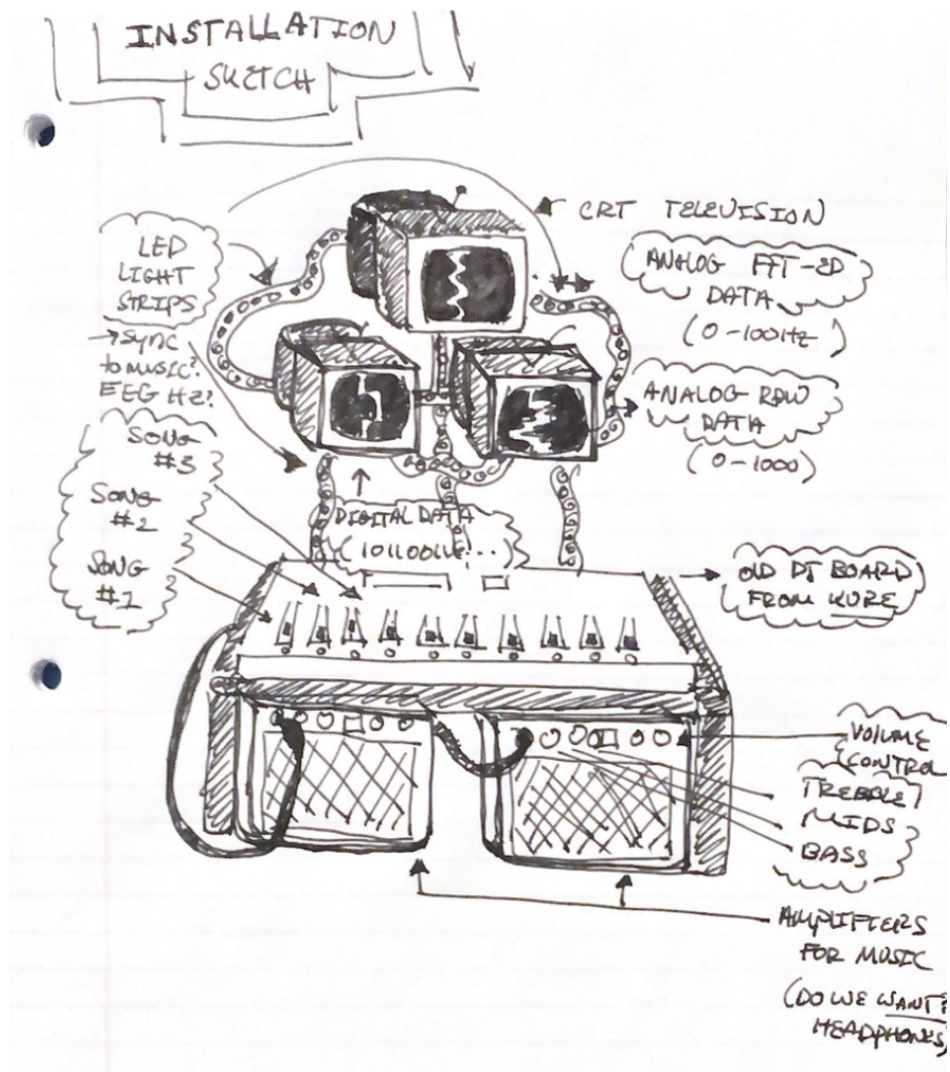 INSTALLATION
SKETCH
CRT TELEVISION
LED
LIGHT
STRIPS
→ SYNC
to MUSIC?
EEG HZ?
ANALOG FFT-ED
DATA
(0-100Hz)
ANALOG RAW
DATA
(0-1000)
SONG
#3
SONG
#2
SONG
#1
DIGITAL DATA
OLD DJ BOARD
FROM KURE
VOLUME
CONTROL
TREBBLE
MIDS
BASS
AMPLIFIERS
FOR MUSIC
(DO WE WANT?
HEADPHONES)